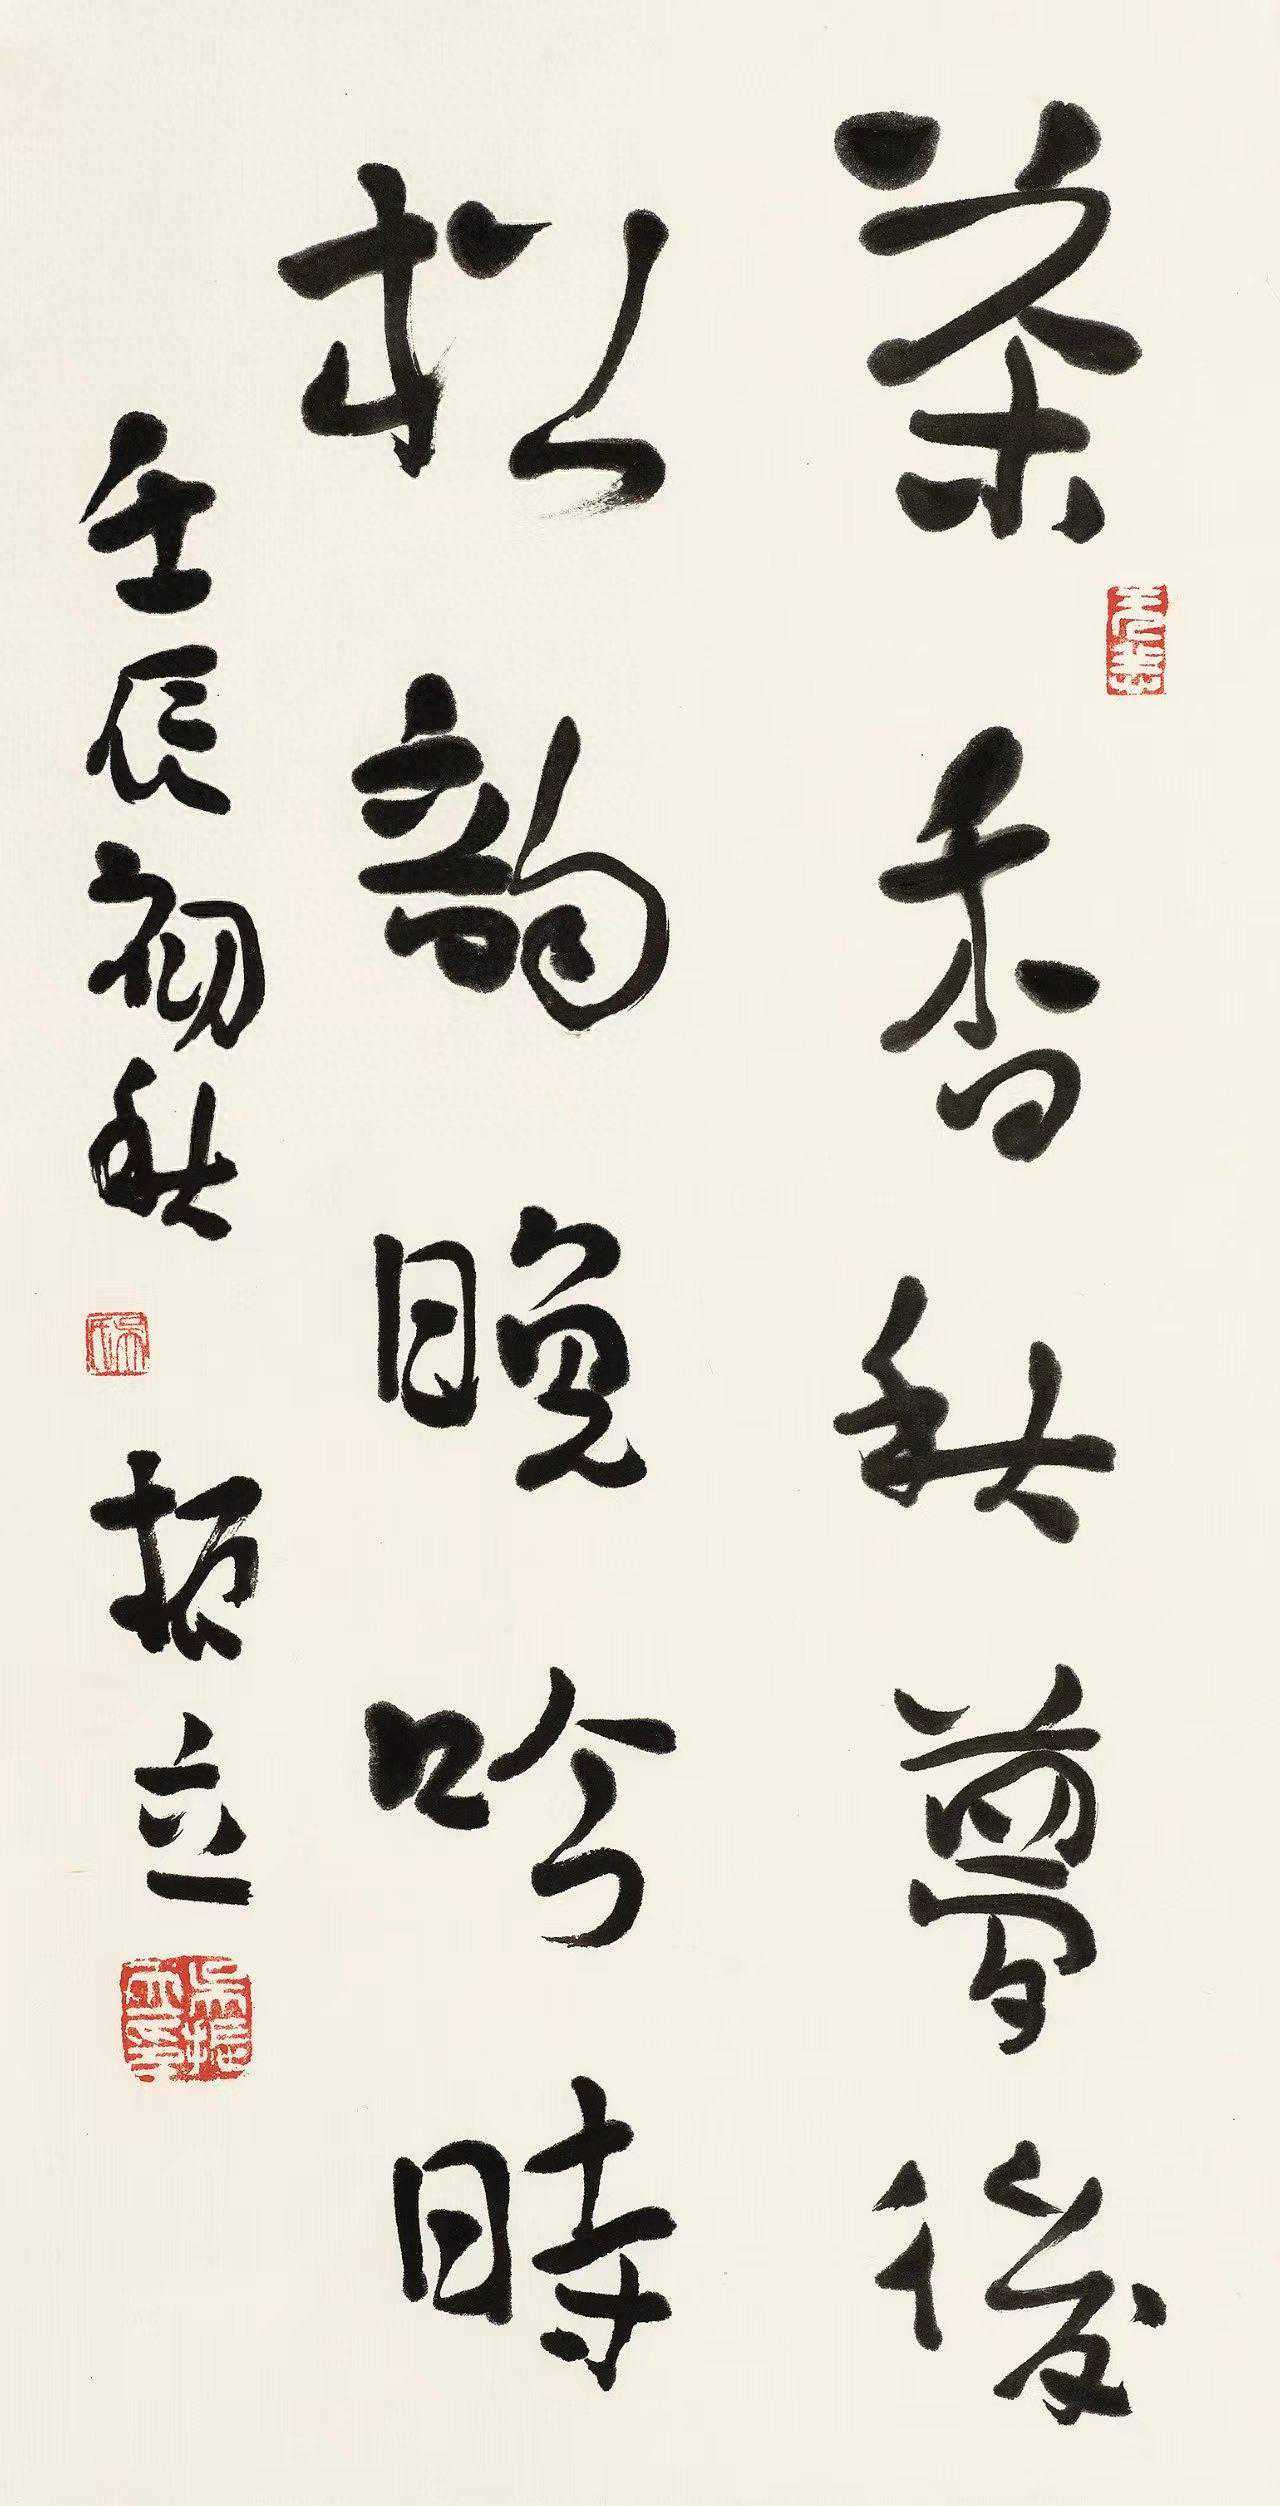 茶香秋夢後
松韵晚吟時
壬辰初秋
振立